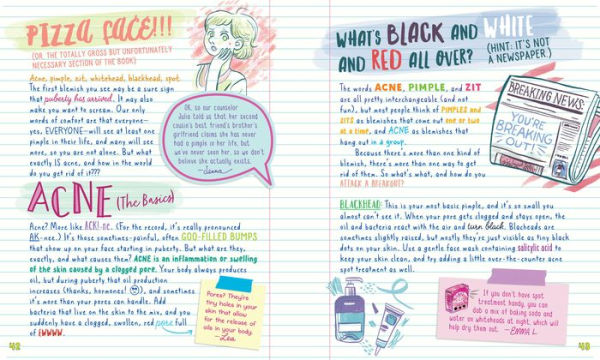 PIZZA FACE!!!
(OR, THE TOTALLY GROSS BUT UNFORTUNATELY
NECESSARY SECTION OF THE BOOK)
Acne, pimple, zit, whitehead, blackhead, spot.
The first blemish you see may be a sure sign
that puberty has arrived. It may also
make you want to scream. Our only
words of comfort are that everyone—
yes, EVERYONE—will see at least one
pimple in their life, and many will see
more, so you are not alone. But what
exactly IS acne, and how in the world
do you get rid of it???
OK, so our counselor
Julia told us that her second
cousin's best friend's brother's
girlfriend claims she has never
had a pimple in her life, but
we've never seen her, so we don't
believe she actually exists.
ACNE (The Basics)
Acne? More like ACK!-ne. (For the record, it's really pronounced
AK-nee.) It's those sometimes-painful, often GOO-FILLED BUMPS
that show up on your face starting in puberty. But what are they,
exactly, and what causes them? ACNE is an inflammation or swelling
of the skin caused by a clogged pore. Your body always produces
oil, but during puberty that oil production
increases (thanks, hormones!), and sometimes
it's more than your pores can handle. Add
bacteria that live on the skin to the mix, and you
suddenly have a clogged, swollen, red pore full
of EWWWW.
Pores? They're
tiny holes in your
skin that allow
for the release of
oils in your body.
42
WHAT'S BLACK AND WHITE
AND RED ALL OVER?
(HINT: IT'S NOT
A NEWSPAPER.)
The words ACNE, PIMPLE, and ZIT
are all pretty interchangeable (and not
fun), but most people think of PIMPLES and
ZITS as blemishes that come out one or two
at a time, and ACNE as blemishes that
hang out in a group.
Because there's more than one kind of
blemish, there's more than one way to get
rid of them. So what's what, and how do you
ATTACK A BREAKOUT?
BREAKING NEWS:
YOU'RE
BREAKING
OUT!
BLACKHEAD: This is your most basic pimple, and it's so small you
almost can't see it. When your pore gets clogged and stays open, the
oil and bacteria react with the air and turn black. Blackheads are
sometimes slightly raised, but mostly they're just visible as tiny black
dots on your skin. Use a gentle face wash containing salicylic acid to
keep your skin clean, and try adding a little over-the-counter acne
spot treatment as well.
If you don't have spot
treatment handy, you can
dab a mix of baking soda and
water on whiteheads at night, which will
help dry them out. —EMMA L.
43